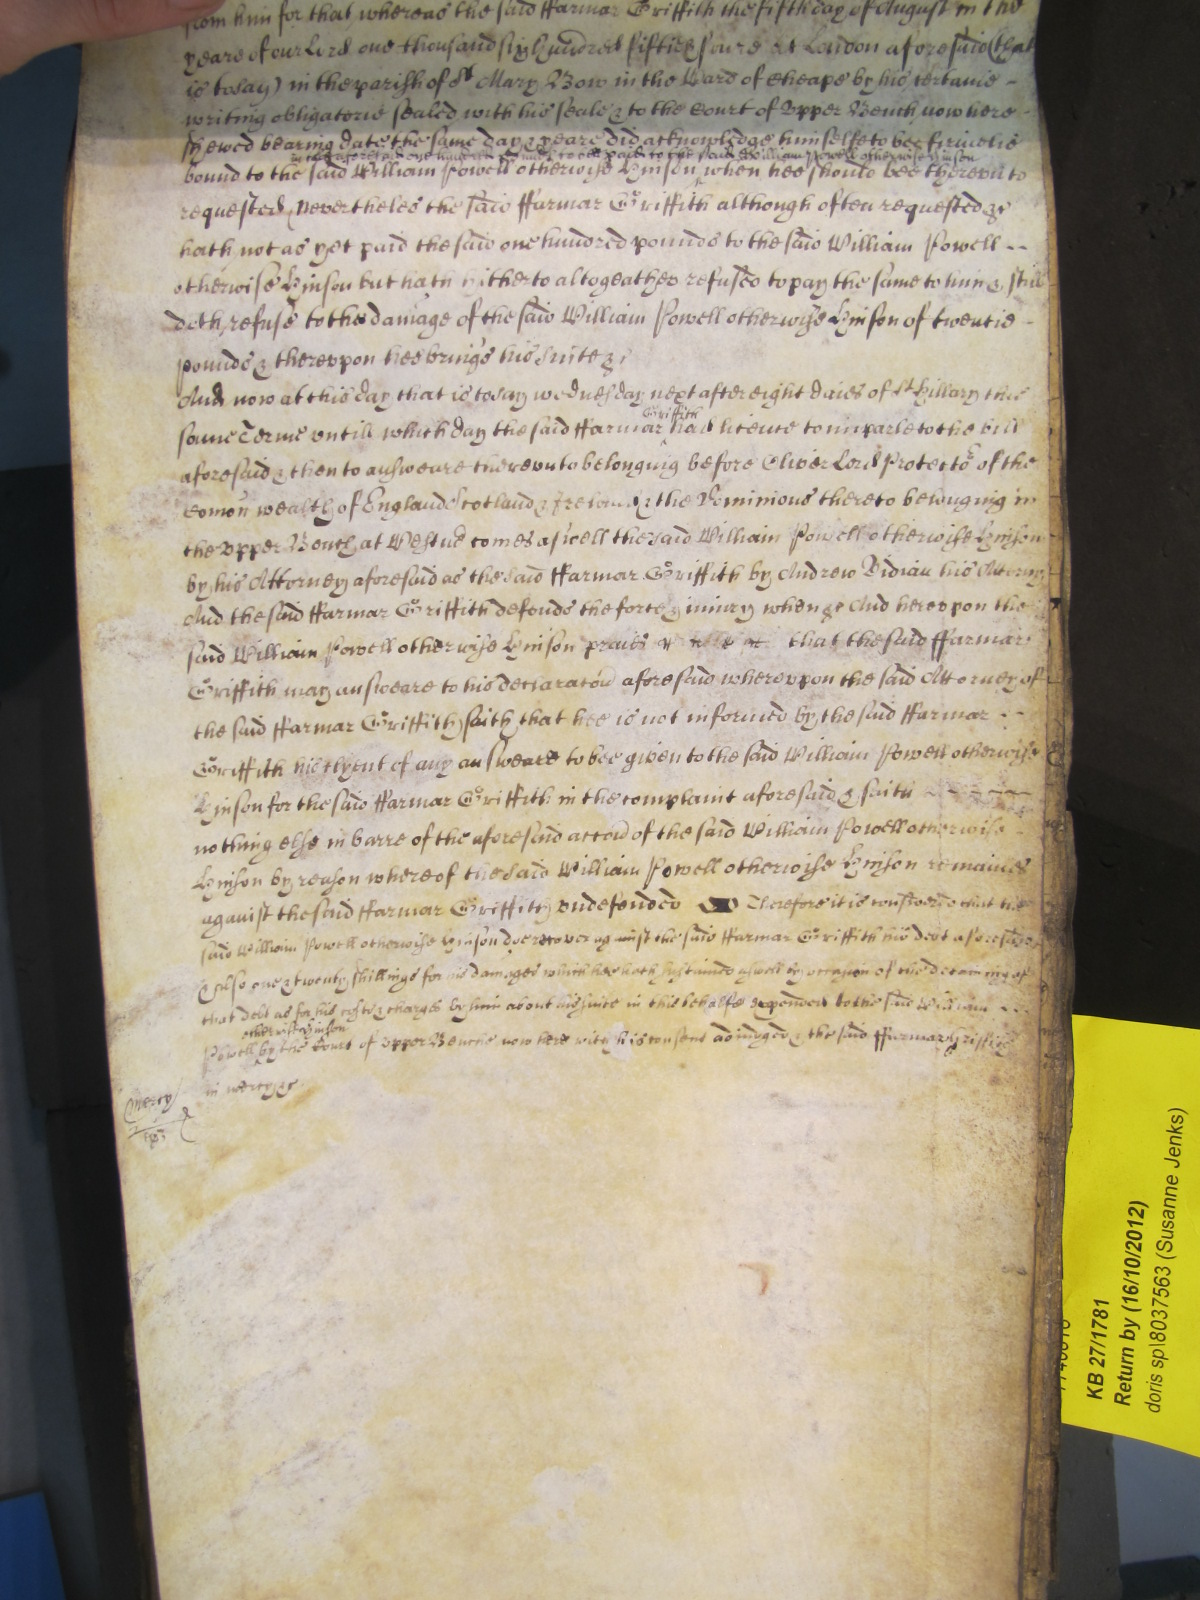 from him for that whereas the said ffarmar Griffith the fifth day of August in the
yeare of our Lord one thousand six hundred fiftie foure at London aforesaid (that
is to say) in the parish of St Mary Bow in the Ward of Cheape by his certaine -
writing obligatorie sealed with his seale & to the Court of Upper Bench now here -
shewed bearing date the same day & yeare did acknowledge himselfe to bee firmelie
in the aforesaid one hundred pounds to bee paid to the said William Powell otherwise Hinson
bound to the said William Powell otherwise Hinson when hee should bee thereunto
requested Nevertheles the said ffarmar Griffith although often requested &c
hath not as yet paid the said one hundred pounds to the said William Powell - -
otherwise Hinson but hath hitherto altogeather refused to pay the same to him & still
doth refuse to the damage of the said William Powell otherwise Hinson of twentie -
pounds & thereupon hee brings his suite &c
And now at this day that is to say wednesday next after eight daies of St Hillary this
Griffith
same Terme untill which day the said ffarmar had licence to imparle to the bill
aforesaid & then to answeare thereunto belonging before Oliver Lord Protector of the
Comon wealth of England Scotland & Ireland & the Dominions thereto belonging in
the Upper Bench at Westm comes aswell the said William Powell otherwise Hinson
by his Attorney aforesaid as the said ffarmar Griffith by Andrew Vidian his Attorny
And the said ffarmar Griffith defends the force & iniury when &c And hereupon the
said William Powell otherwise Hinson praies that the said ffarmar
Griffith may answeare to his declaracon aforesaid whereupon the said Attorney of
the said ffarmar Griffith saith that hee is not informed by the said ffarmar - -
Griffith his clyent of any answeare to bee given to the said William Powell otherwise
Hinson for the said ffarmar Griffith in the complaint aforesaid & saith
nothing else in barre of the aforesaid accon of the said William Powell otherwise
Hinson by reason whereof the said William Powell otherwise Hinson remaines
against the said ffarmar Griffith undefended Therefore it is considered that the
said William Powell otherwise Hinson doe recover against the said ffarmar Griffith his debt aforesaid
Also one & twenty shillings for his damages which hee hath sustained aswell by occasion of the detaining of
that debt as for his costs & charges by him about his suite in this behalfe expended to the said William - - -
otherwise Hinson
Powell by the Court of Upper Bench now here with his consent adiudged & the said ffarmar Griffith
in mercy &c
Mercy
KB 27/1781
Return by (16/10/2012)
doris sp\8037563 (Susanne Jenks)